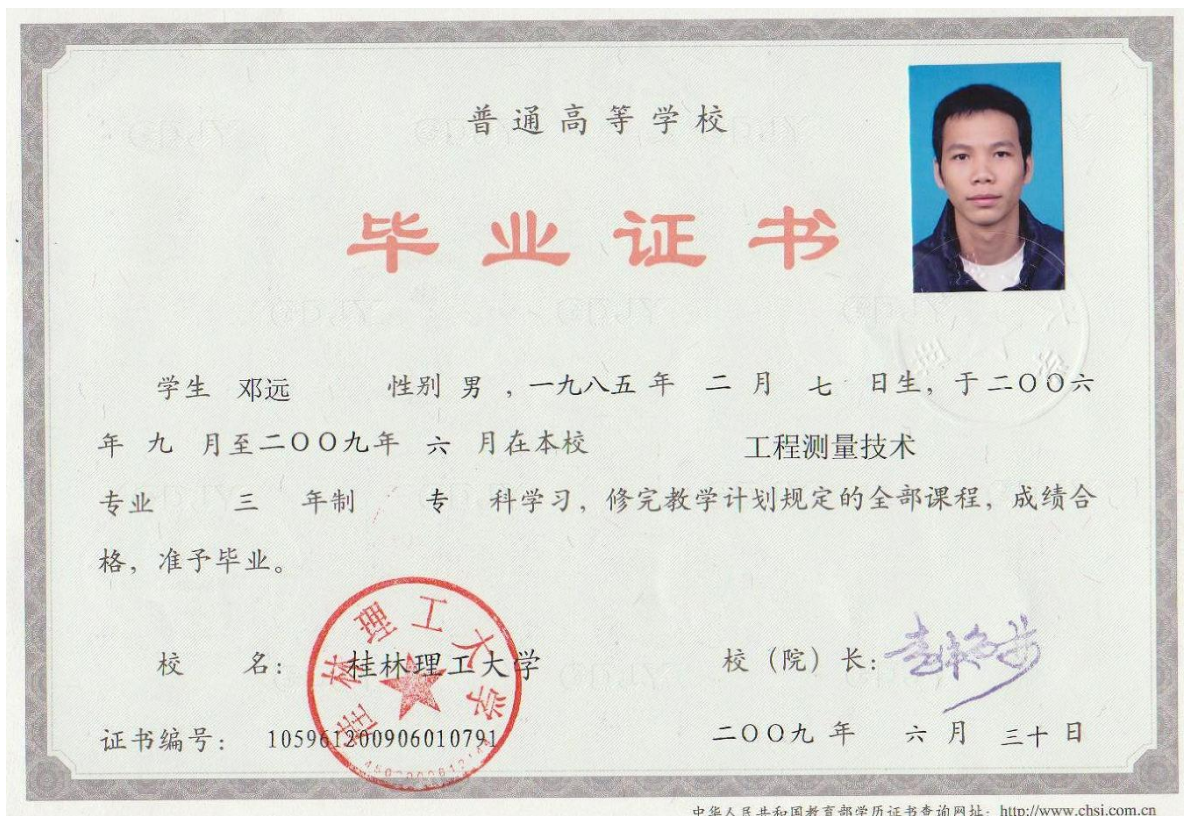 普通高等学校
毕业证书
学生 邓远 性别 男 ，一九八五 年 二 月 七 日生，于二〇〇六
年 九 月至二〇〇九年 六 月在本校 工程测量技术
专业 三 年制 专 科学习，修完教学计划规定的全部课程，成绩合
格，准予毕业。
校 名：桂林理工大学 校（院）长：
桂林理工大学
证书编号： 105961200906010791 二〇〇九 年 六 月 三十 日
中华人民共和国教育部学历证书查询网址：http://www.chsi.com.cn